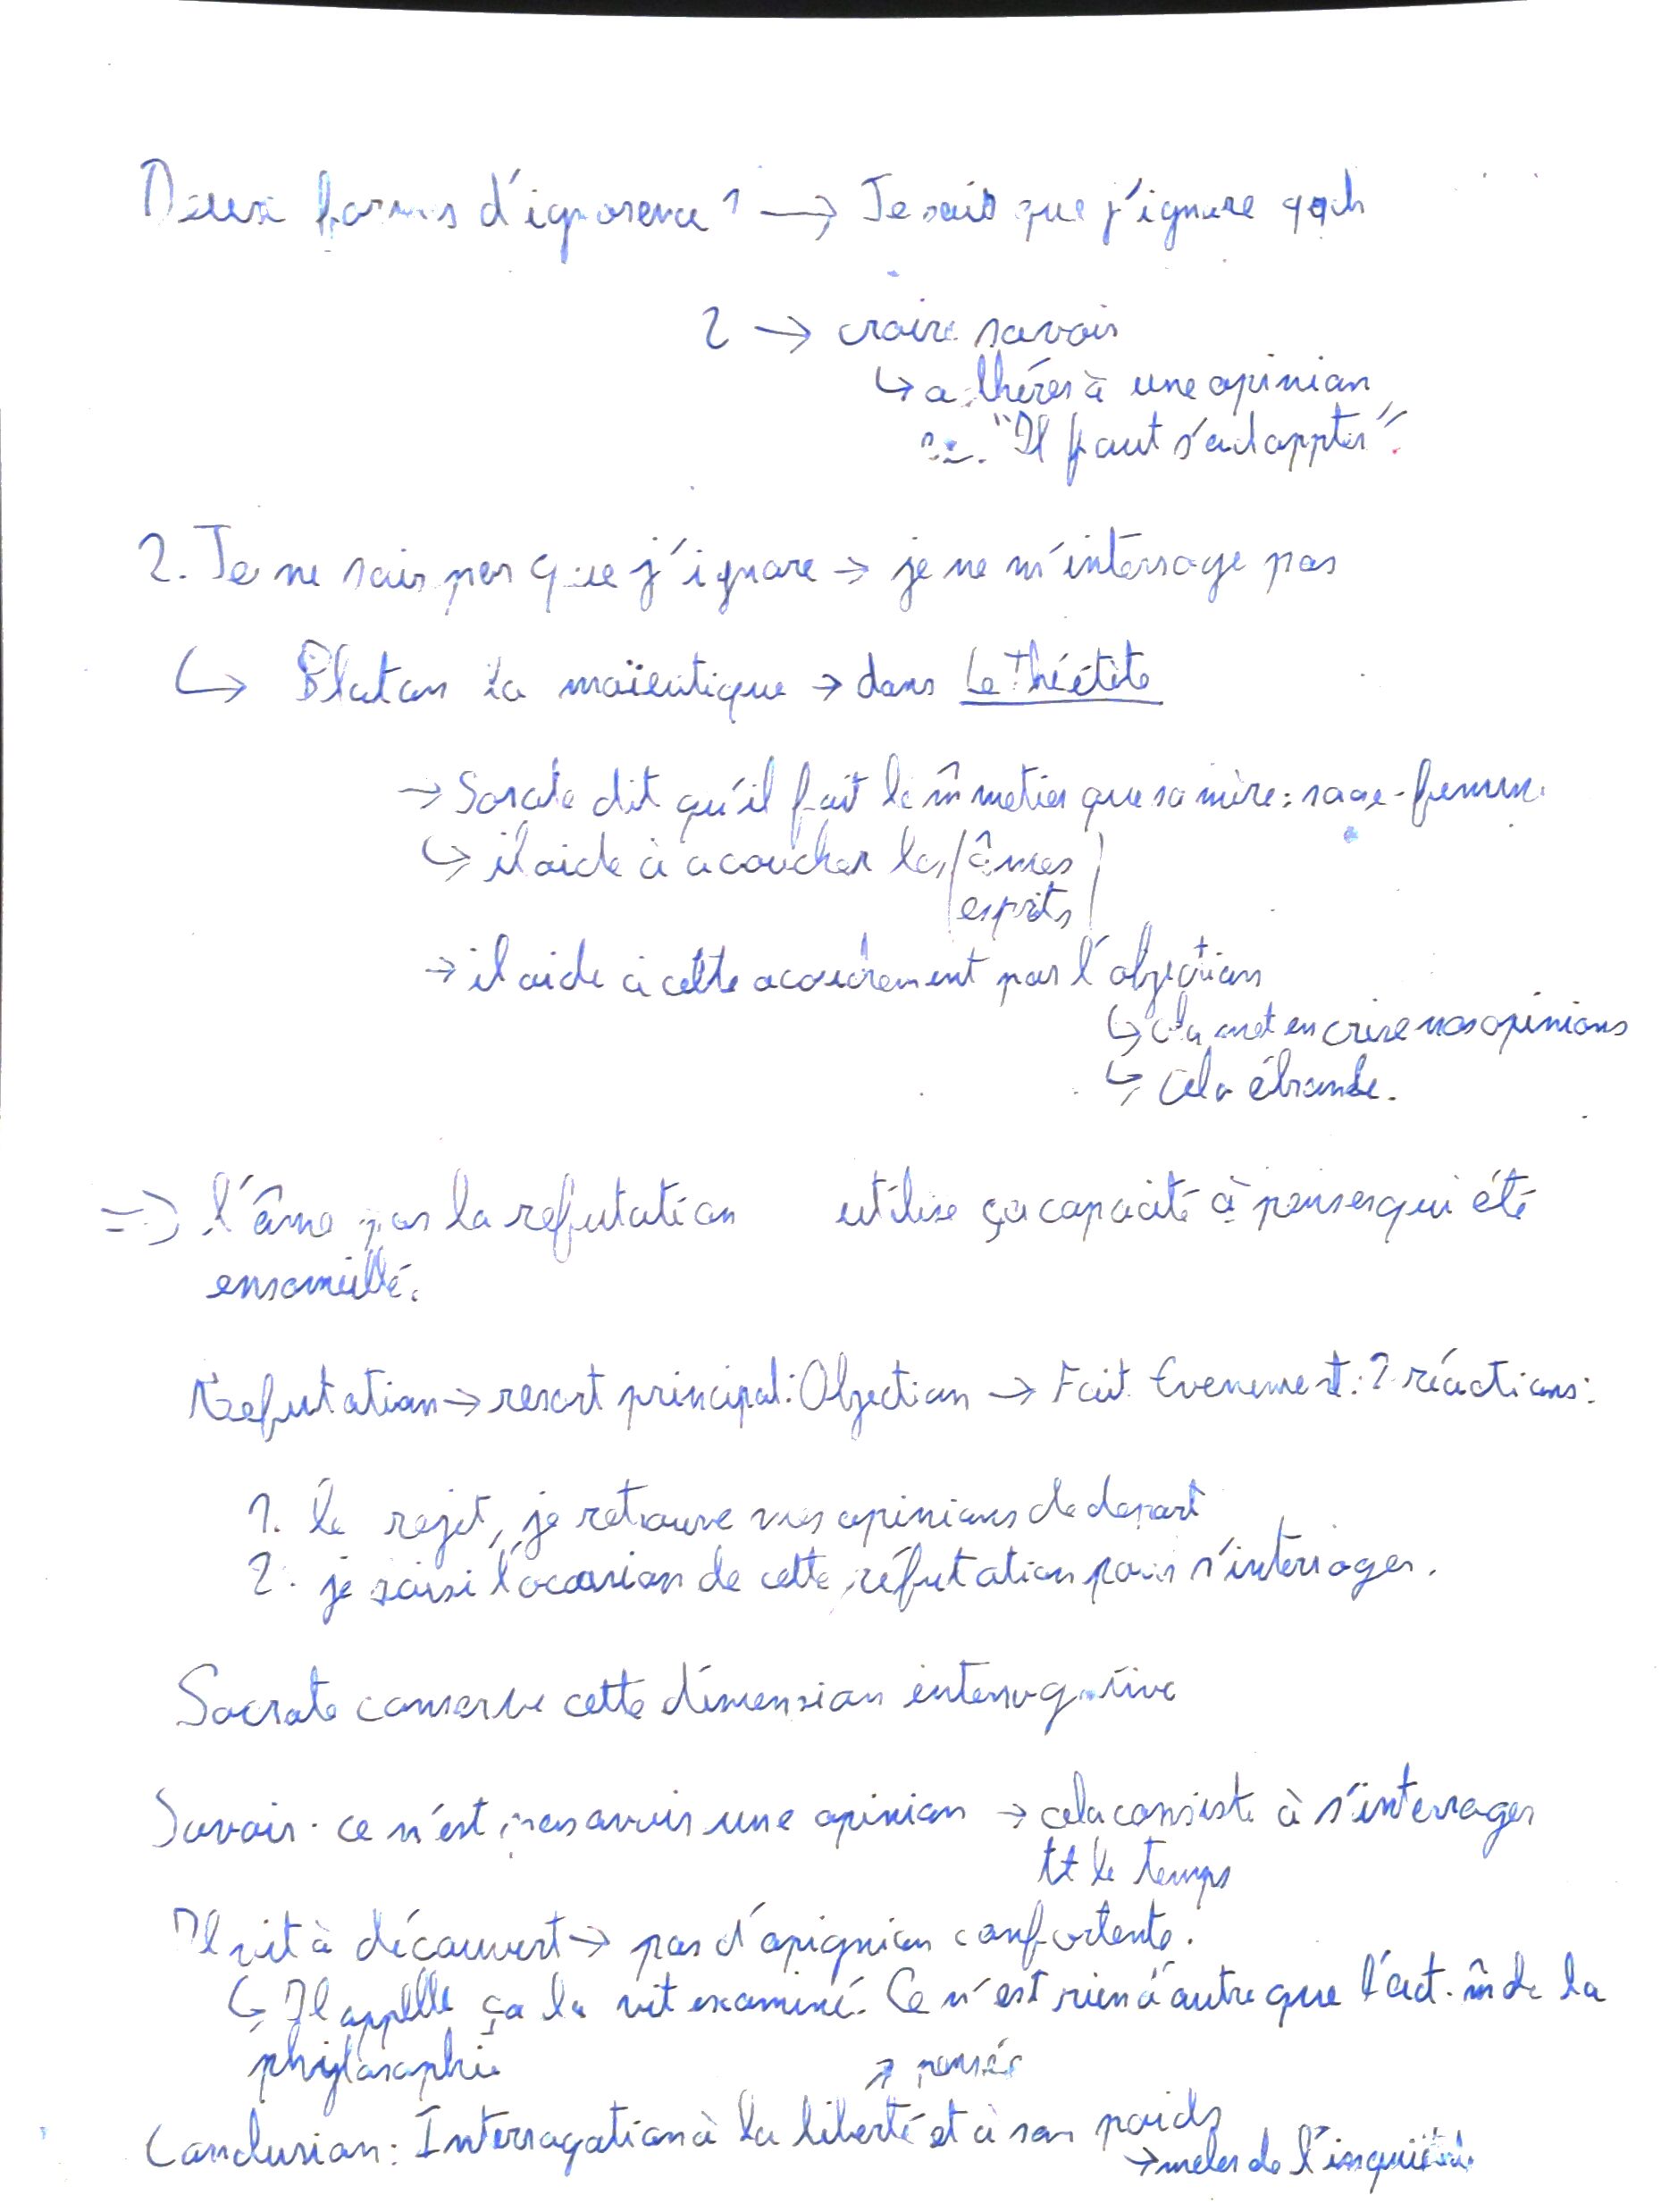 Deux formes d'ignorence 1 → Je sais que j'ignore qqch
2 → croire savoir
↳ adhérer à une opinion
"Il faut s'adappter".
2. Je ne sais pas que j'ignore → je ne m'interroge pas
↳ Platon la maïeutique → dans Le Théétète
→ Socrate dit qu'il fait le m̂ metier que sa mère : sage-femme.
↳ il aide à acoucher les âmes
esprits
→ il aide à cette acouchement par l'objection
↳ cela met en crise nos opinions
↳ Cela ébranle.
=> l'âme par la refutation utilise ça capacité à penser qui été
ensomeillé.
Refutation → resort principal : Objection → Fait Evenement : 2 réactions :
1. le rejet, je retrouve mes opinions de depart
2. je saisi l'occasion de cette réfutation pour s'interroger.
Socrate conserve cette dimension interrogative
Savoir. ce n'est pas avoir une opinion → cela consiste à s'interroger
tt le temps
Il vit à découvert → pas d'opignion confortente.
↳ Il appelle ça la vit examiné. Ce n'est rien d'autre que l'act. m̂ de la
phylosophie
↗ pensée
Conclusion : Interrogation à la liberté et à son poids
→ meler de l'inquiétude